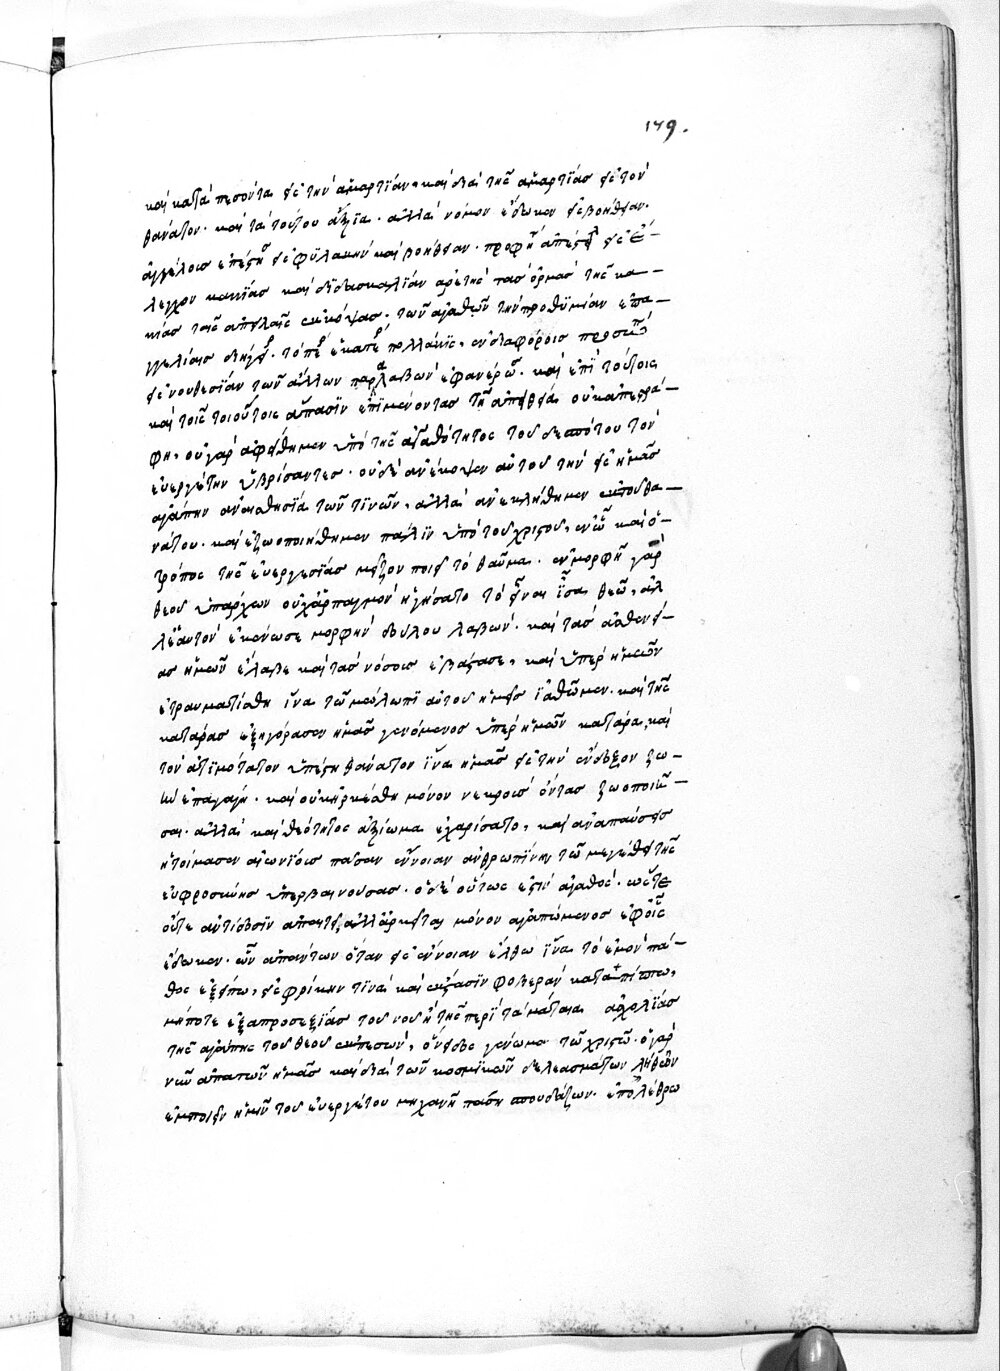 179.
καὶ καταπεσόντα εἰς τὴν ἁμαρτίαν, καὶ διὰ τῆς ἁμαρτίας εἰς τὸν
θάνατον· καὶ τὰ τούτου ἄξια· ἀλλὰ νόμον ἔδωκεν εἰς βοήθειαν·
ἀγγέλοις ἐπέστησεν εἰς φυλακὴν καὶ βοήθειαν· προφήτας ἀπέστειλεν εἰς ἔ-
λεγχον κακίας καὶ διδασκαλίαν ἀρετῆς· τὰς ὁρμὰς τῆς κα-
κίας ταῖς ἀπειλαῖς ἐνέκοψας· τῶν ἀγαθῶν τὴν προθυμίαν ἐπα-
γγελίαις διήγειρε· τὸ πέρας ἑκατέρου πολλάκις, ἐν διαφόροις προσώποις
εἰς νουθεσίαν τῶν ἄλλων παραλαβὼν ἐφανέρωσε· καὶ ἐπὶ τούτοις
καὶ τοῖς τοιούτοις ἅπασιν ἐπιμένοντας τῇ ἀπειθείᾳ οὐκ ἀπεστρά-
φη, οὐ γὰρ ἀφείθημεν ὑπὸ τῆς ἀγαθότητος τοῦ δεσπότου τὸν
εὐεργέτην ὑβρίσαντες· οὐδὲ ἀνέκοψεν αὐτοῦ τὴν εἰς ἡμᾶς
ἀγάπην ἀναισθησία τῶν τινῶν, ἀλλὰ ἀνεκλήθημεν ἐκ τοῦ θα-
νάτου· καὶ ἐζωοποιήθημεν πάλιν ὑπὸ τοῦ χριστοῦ, ἐν ᾧ καὶ ὁ
τρόπος τῆς εὐεργεσίας μεῖζον ποιεῖ τὸ θαῦμα· ἐν μορφῇ γὰρ
θεοῦ ὑπάρχων οὐχ ἁρπαγμὸν ἡγήσατο τὸ εἶναι ἶσα θεῷ, ἀλ
λ᾽ ἑαυτὸν ἐκένωσε μορφὴν δούλου λαβών· καὶ τὰς ἀσθενεί-
ας ἡμῶν ἔλαβε καὶ τὰς νόσους ἐβάστασε, καὶ ὑπὲρ ἡμῶν
ἐτραυματίσθη ἵνα τῷ μώλωπι αὐτοῦ ἡμεῖς ἰαθῶμεν· καὶ τῆς
κατάρας ἐξηγόρασεν ἡμᾶς γενόμενος ὑπὲρ ἡμῶν κατάρα, καὶ
τὸν ἀτιμότατον ὑπέστη θάνατον ἵνα ἡμᾶς εἰς τὴν ἔνδοξον ζω-
ὴν ἐπαγάγῃ· καὶ οὐκ ἠρκέσθη μόνον νεκροὺς ὄντας ζωοποιῆ-
σαι· ἀλλὰ καὶ θεότητος ἀξίωμα ἐχαρίσατο, καὶ ἀναπαύσεις
ἡτοίμασεν αἰωνίους πᾶσαν ἔννοιαν ἀνθρωπίνην τῷ μεγέθει τῆς
εὐφροσύνης ὑπερβαινούσας· ὁ δὲ οὕτως ἐστὶν ἀγαθός· ὥστε
οὔτε ἀντίδοσιν ἀπαιτεῖ, ἀλλ᾽ ἀρκεῖται μόνον ἀγαπώμενος ἐφ᾽ οἷς
ἔδωκεν· ὧν ἁπάντων ὅταν εἰς ἔννοιαν ἔλθω ἵνα τὸ ἐμὸν πά-
θος ἐξείπω, εἰς φρίκην τινὰ καὶ ἔκστασιν φοβερὰν καταπίπτω,
μήποτε ἐξ ἀπροσεξίας τοῦ νοῦ ἢ τῆς περὶ τὰ μάταια ἀσχολίας
τῆς ἀγάπης τοῦ θεοῦ ἐκπεσών, ὄνειδος γένωμαι τῷ χριστῷ· ὁ γὰρ
νῦν ἀπατῶν ἡμᾶς καὶ διὰ τῶν κοσμικῶν δελεασμάτων λήθην
ἐμποιεῖν ἡμῖν τοῦ εὐεργέτου μηχανῇ πάσῃ σπουδάζων· ἐπ᾽ ὀλέθρῳ